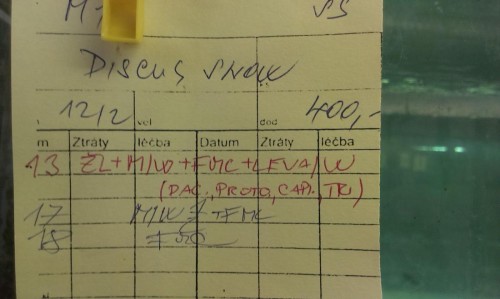 SS
DISCUS SNOW
12/2 vel dod 400,-
m Ztráty léčba Datum Ztráty léčba
13 ŽL+M/W+FMC+LEVA/W
(DAC., PROTO., CAPI., TR)
17 M/W +FMC
18